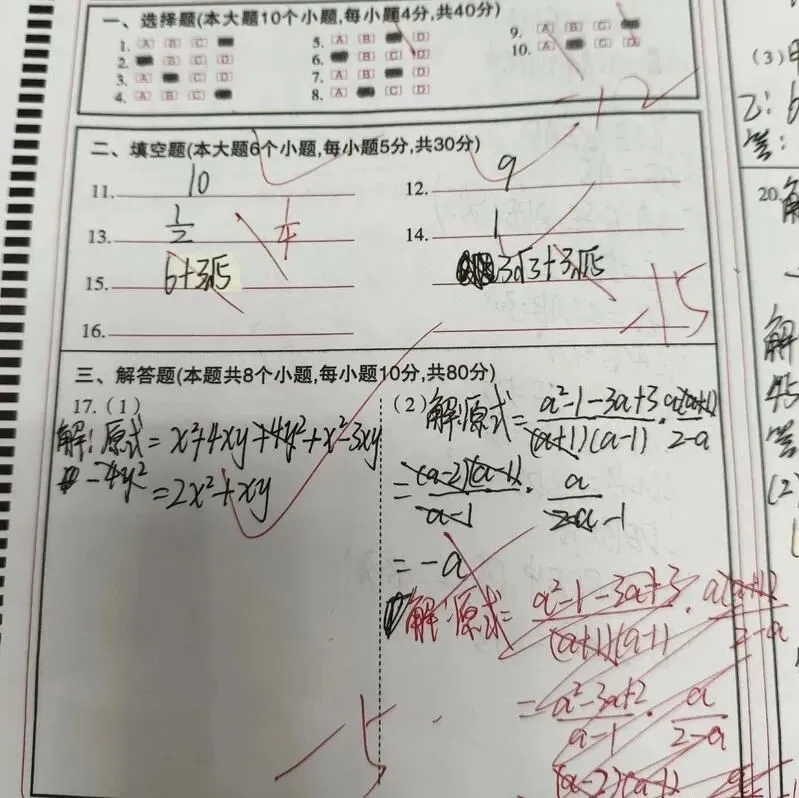 一、选择题(本大题10个小题,每小题4分,共40分)
1. [A] [B] [C]
2. [B] [C] [D]
3. [A] [C] [D]
4. [A] [B] [C]
5. [A] [B] [D]
6. [B] [C] [D]
7. [A] [B] [D]
8. [A] [C] [D]
9. [A] [B] [C]
10. [A] [C] [D]
-12
二、填空题(本大题6个小题,每小题5分,共30分)
11. 10
12. 9
13. 1/2 1/4
14. 1
15. 6+3√5
3√3+3√15
16.
-15
三、解答题(本题共8个小题,每小题10分,共80分)
17. (1)
解:原式=x²+4xy+4y²+x²-3xy
-4y²
=2x²+xy
(2) 解:原式=a²-1-3a+3/(a+1)(a-1)·a(a+1)/2-a
=(a-2)(a-1)/a-1·a/2-a
=-a
解:原式=a²-1-3a+3/(a+1)(a-1)·a(a+1)/2-a
=a²-3a+2/a-1·a/2-a
(a-2)(a-1)
-5
(3)
乙:
答:
20.
解
45
答:
(2)